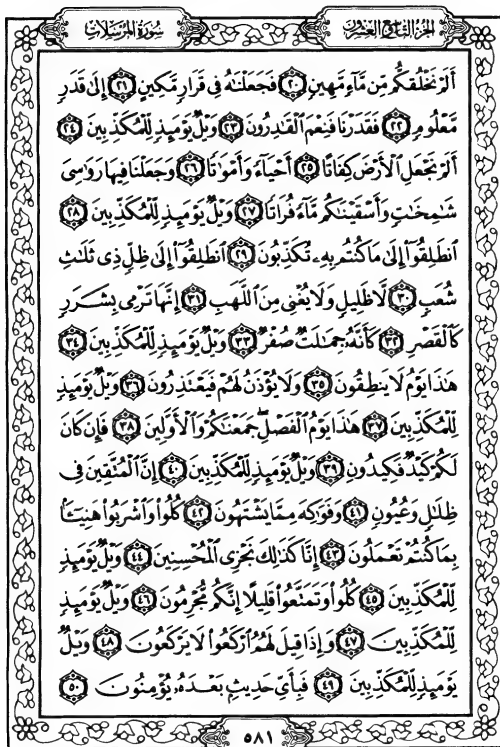 سورة المرسلات
الجزء التاسع والعشرون
أَلَمْ نَخْلُقكُّم مِّن مَّآءٍ مَّهِينٍ ٢٠ فَجَعَلْنَٰهُ فِى قَرَارٍ مَّكِينٍ ٢١ إِلَىٰ قَدَرٍ
مَّعْلُومٍ ٢٢ فَقَدَرْنَا فَنِعْمَ ٱلْقَٰدِرُونَ ٢٣ وَيْلٌ يَوْمَئِذٍ لِّلْمُكَذِّبِينَ ٢٤
أَلَمْ نَجْعَلِ ٱلْأَرْضَ كِفَاتًا ٢٥ أَحْيَآءً وَأَمْوَٰتًا ٢٦ وَجَعَلْنَا فِيهَا رَوَٰسِىَ
شَٰمِخَٰتٍ وَأَسْقَيْنَٰكُم مَّآءً فُرَاتًا ٢٧ وَيْلٌ يَوْمَئِذٍ لِّلْمُكَذِّبِينَ ٢٨
ٱنطَلِقُوٓا۟ إِلَىٰ مَا كُنتُم بِهِۦ تُكَذِّبُونَ ٢٩ ٱنطَلِقُوٓا۟ إِلَىٰ ظِلٍّ ذِى ثَلَٰثِ
شُعَبٍ ٣٠ لَّا ظَلِيلٍ وَلَا يُغْنِى مِنَ ٱللَّهَبِ ٣١ إِنَّهَا تَرْمِى بِشَرَرٍ
كَٱلْقَصْرِ ٣٢ كَأَنَّهُۥ جِمَٰلَتٌ صُفْرٌ ٣٣ وَيْلٌ يَوْمَئِذٍ لِّلْمُكَذِّبِينَ ٣٤
هَٰذَا يَوْمُ لَا يَنطِقُونَ ٣٥ وَلَا يُؤْذَنُ لَهُمْ فَيَعْتَذِرُونَ ٣٦ وَيْلٌ يَوْمَئِذٍ
لِّلْمُكَذِّبِينَ ٣٧ هَٰذَا يَوْمُ ٱلْفَصْلِ جَمَعْنَٰكُمْ وَٱلْأَوَّلِينَ ٣٨ فَإِن كَانَ
لَكُمْ كَيْدٌ فَكِيدُونِ ٣٩ وَيْلٌ يَوْمَئِذٍ لِّلْمُكَذِّبِينَ ٤٠ إِنَّ ٱلْمُتَّقِينَ فِى
ظِلَٰلٍ وَعُيُونٍ ٤١ وَفَوَٰكِهَ مِمَّا يَشْتَهُونَ ٤٢ كُلُوا۟ وَٱشْرَبُوا۟ هَنِيٓـًٔۢا
بِمَا كُنتُمْ تَعْمَلُونَ ٤٣ إِنَّا كَذَٰلِكَ نَجْزِى ٱلْمُحْسِنِينَ ٤٤ وَيْلٌ يَوْمَئِذٍ
لِّلْمُكَذِّبِينَ ٤٥ كُلُوا۟ وَتَمَتَّعُوا۟ قَلِيلًا إِنَّكُم مُّجْرِمُونَ ٤٦ وَيْلٌ يَوْمَئِذٍ
لِّلْمُكَذِّبِينَ ٤٧ وَإِذَا قِيلَ لَهُمُ ٱرْكَعُوا۟ لَا يَرْكَعُونَ ٤٨ وَيْلٌ
يَوْمَئِذٍ لِّلْمُكَذِّبِينَ ٤٩ فَبِأَىِّ حَدِيثٍۭ بَعْدَهُۥ يُؤْمِنُونَ ٥٠
٥٨١